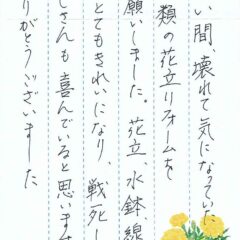 い間、壊れて気になっていた
類の花立リフォームを
願いしました。花立、水鉢、線
とてもきれいになり、戦死し
じさんも喜んでいると思いませ
りがとうございました